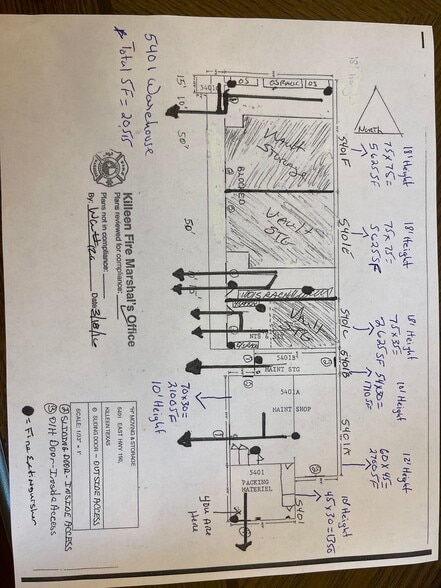 18' Height
NORTH
18' Height
75x75=
5625SF
18' Height
75x75=
5625SF
18' Height
75x35=
2625SF
54x30=
10' Height
12' Height
60x45=
2700SF
10' Height
45x30=1350
5401F
5401E
5401C
5401B
5401A
5401
OS
OSRACK
OS
Vault
Storage
BLOCKED
Vault
STG
Vault
STG
NTS
5401B
MAINT STG
5401A
MAINT SHOP
5401
PACKING
MATERIEL
15'
10'
50'
50'
15'
70x30=
2100SF
10' Height
You Are
Here
5401 Warehouse
* Total SF = 20,515
Killeen Fire Marshal's Office
Plans reviewed for compliance:
Plans not in compliance:
By:
Date
"H" MOVING & STORAGE
5401 EAST HWY 190,
KILLEEN TEXAS
① SLIDING DOOR - OUTSIDE ACCESS
SCALE:
② SLIDING DOOR - INSIDE ACCESS
③ O/H Door - Inside Access
● = Fire Extinguisher